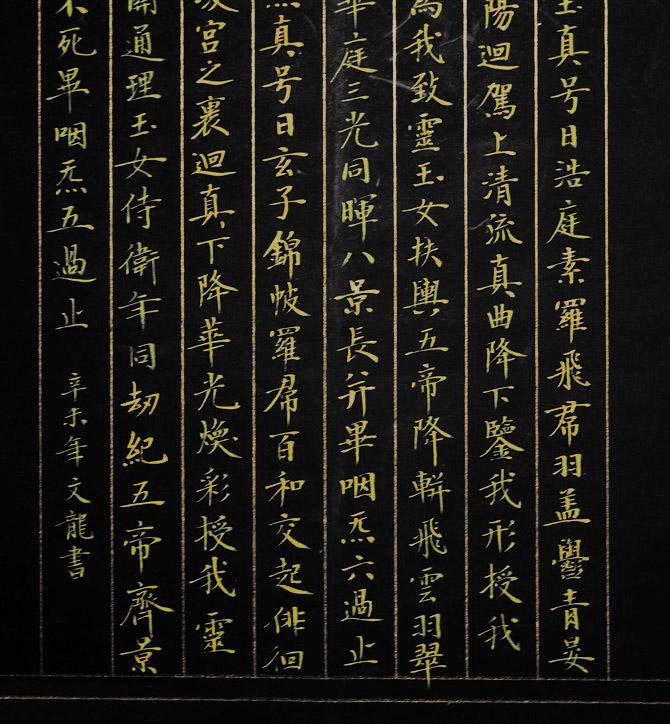 玉真号曰浩庭素羅飛帬羽盖鬱青晏
陽迴駕上清流真曲降下鑒我形授我
為我致靈玉女扶輿五帝降軿飛雲羽翠
華庭三光同暉八景長并畢咽炁六過止
真号曰玄子錦帔羅帬百和交起徘徊
宮之裏迴真下降華光煥彩授我靈
開通理玉女侍衛年同劫紀五帝齊景
不死畢咽炁五過止
辛未年文龍書